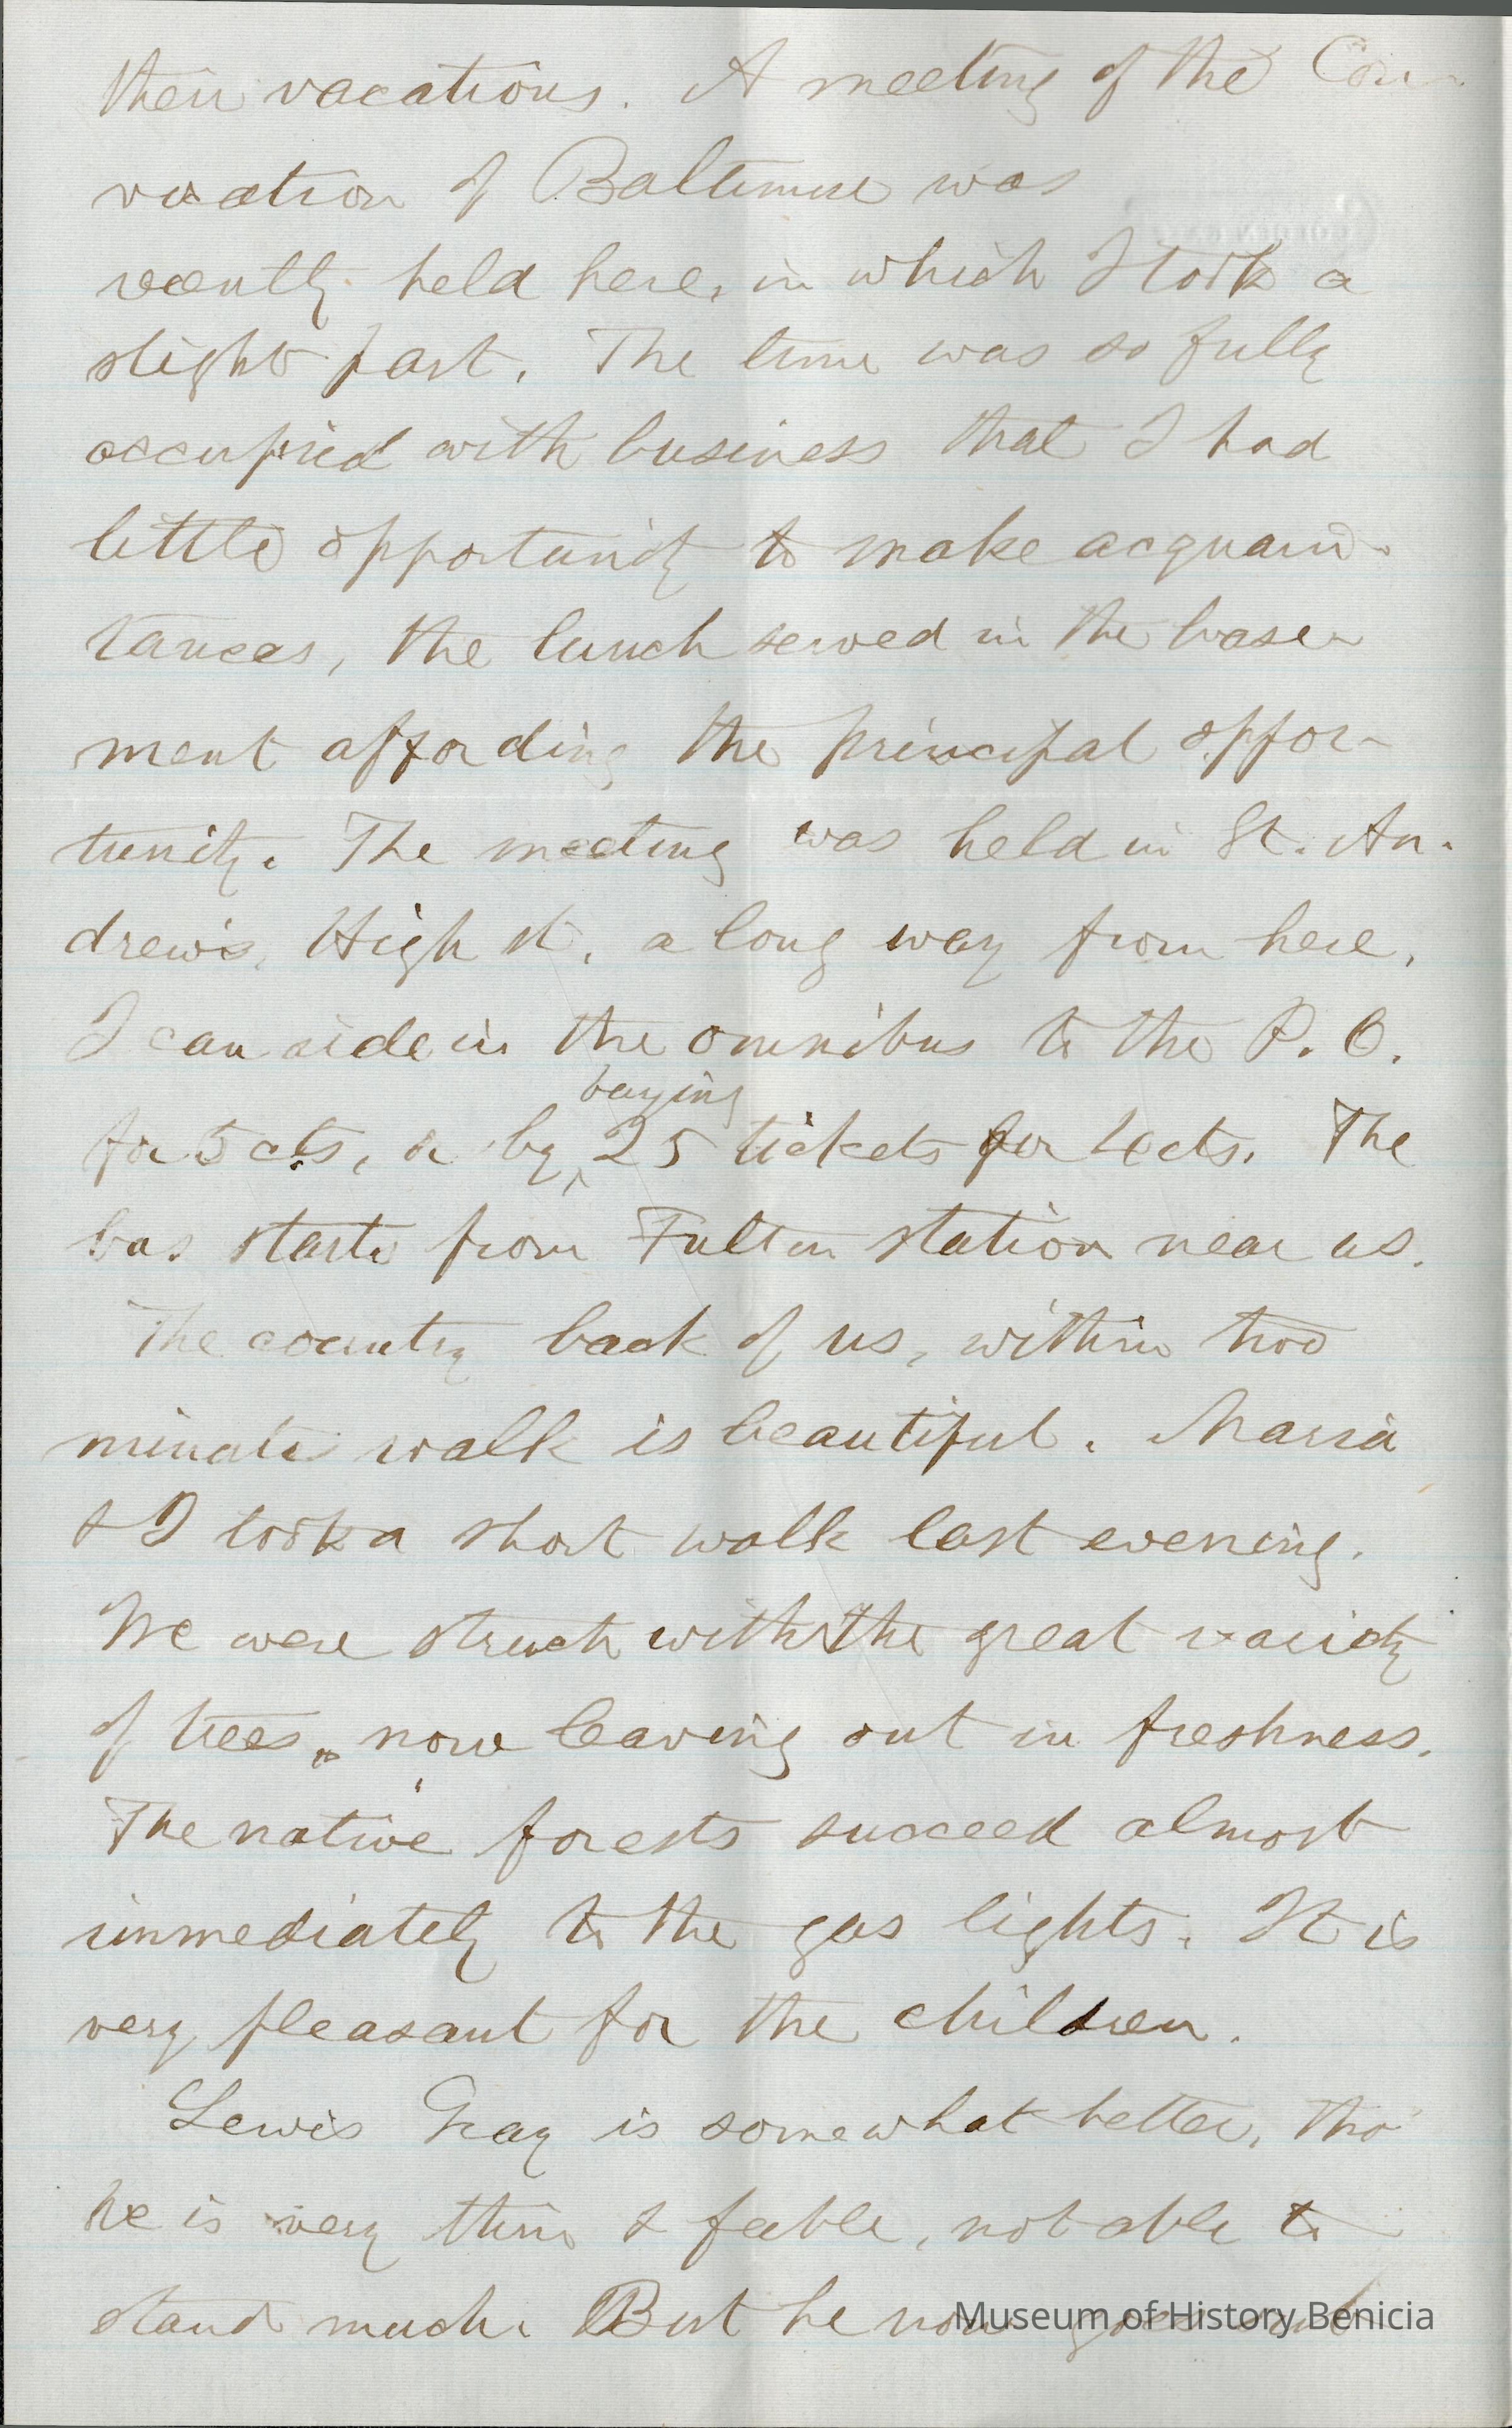 their vacations. A meeting of the Con-
vocation of Baltimore was
recently held here, in which I took a
slight part. The time was so fully
occupied with business that I had
little opportunity to make acquain-
tances, the lunch served in the base-
ment affording the principal oppor-
tunity. The meeting was held in St. An-
drew's, High st, a long way from here.
I can ride in the omnibus to the P. O.
buying
for 5 cts, or by 25 tickets for 4 cts. The
bus starts from Fulton station near us.
The country back of us, within two
minutes walk is beautiful. Maria
& I took a short walk last evening.
We were struck with the great variety
of trees, now leaving out in freshness.
The native forests succeed almost
immediately to the gas lights. It is
very pleasant for the children.
Lewis Gray is somewhat better, tho'
he is very thin & feeble, not able to
stand much. But he now goes out
Museum of History Benicia